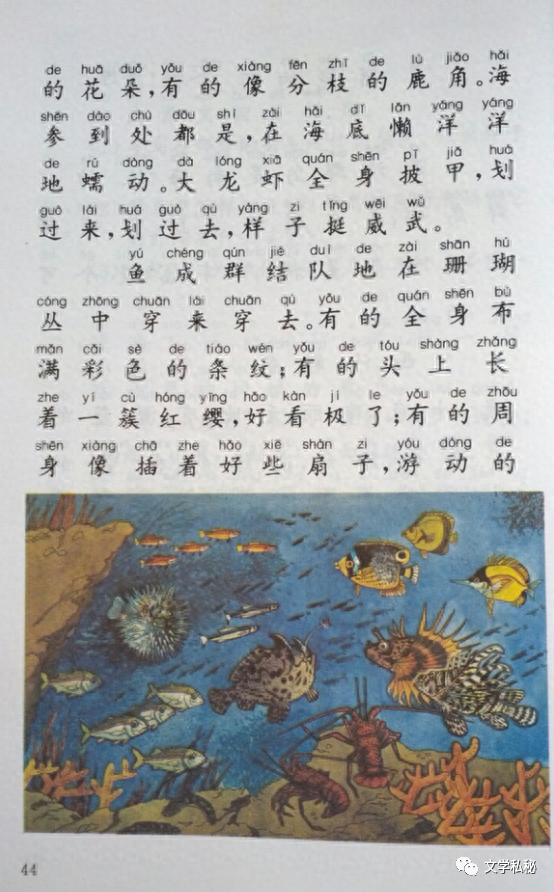 de huā duǒ yǒu de xiàng fēn zhī de lù jiǎo hǎi
的花朵，有的像分枝的鹿角。海
shēn dào chù dōu shì zài hǎi dǐ lǎn yáng yáng
参到处都是，在海底懒洋洋
de rú dòng dà lóng xiā quán shēn pī jiǎ huá
地蠕动。大龙虾全身披甲，划
guò lái huá guò qù yàng zi tǐng wēi wǔ
过来，划过去，样子挺威武。
yú chéng qún jié duì de zài shān hú
鱼成群结队地在珊瑚
cóng zhōng chuān lái chuān qù yǒu de quán shēn bù
丛中穿来穿去。有的全身布
mǎn cǎi sè de tiáo wén yǒu de tóu shàng zhǎng
满彩色的条纹；有的头上长
zhe yí cù hóng yīng hǎo kàn jí le yǒu de zhōu
着一簇红缨，好看极了；有的周
shēn xiàng chā zhe hǎo xiē shàn zi yóu dòng de
身像插着好些扇子，游动的
44
文学私秘